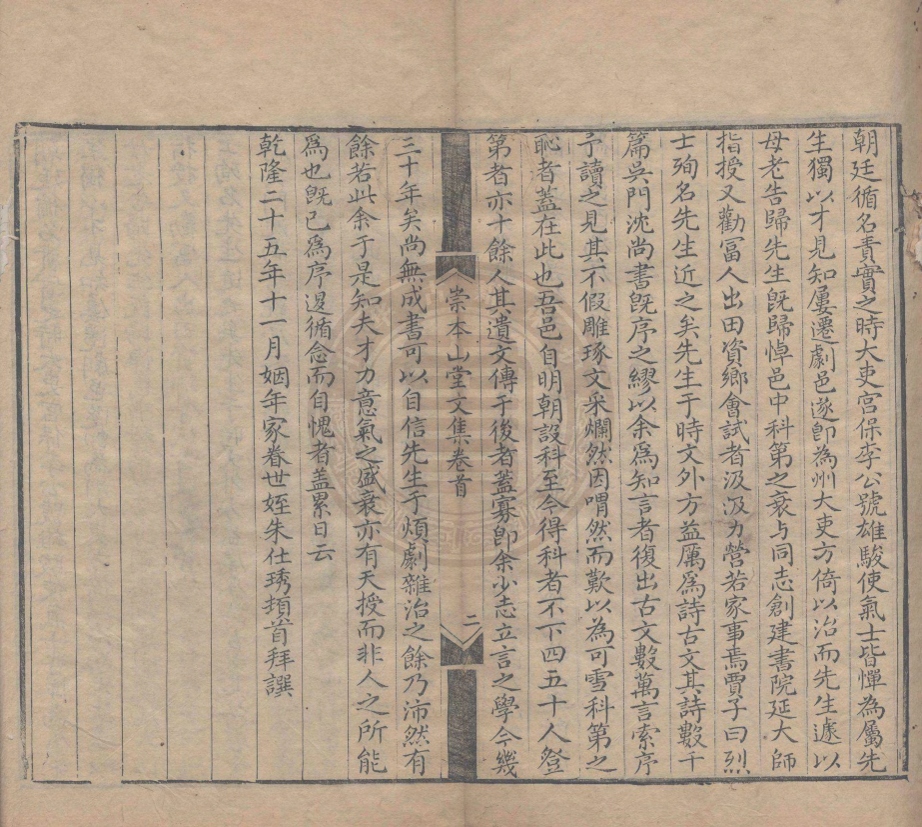 朝廷循名責實之時大吏宮保李公號雄駿使氣士皆憚為屬先
生獨以才見知屢遷劇邑遂卽為州大吏方倚以治而先生遽以
母老告歸先生旣歸悼邑中科第之衰与同志創建書院延大師
指授又勸冨人出田資鄉會試者汲汲力營若家事焉賈子曰烈
士殉名先生近之矣先生于時文外方益厲爲詩古文其詩數千
篇吳門沈尚書旣序之繆以余爲知言者復出古文數萬言索序
予讀之見其不假雕琢文采爛然因喟然而歎以為可雪科第之
恥者蓋在此也吾邑自明朝設科至今得科者不下四五十人登
第者亦十餘人其遺文傳于後者蓋寡卽余少志立言之學今幾
崇本山堂文集卷首
二
三十年矣尚無成書可以自信先生于煩劇雜治之餘乃沛然有
餘若此余于是知夫才力意氣之盛衰亦有天授而非人之所能
爲也旣已爲序逡循念而自愧者盖累日云
乾隆二十五年十一月姻年家眷世姪朱仕琇頓首拜譔